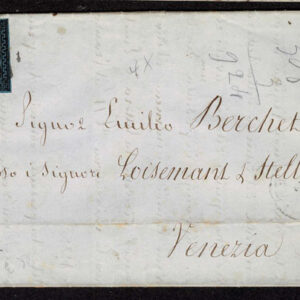 Signor Emilio Berchet
so i Signori Loisemant & Stell
Venezia
4X